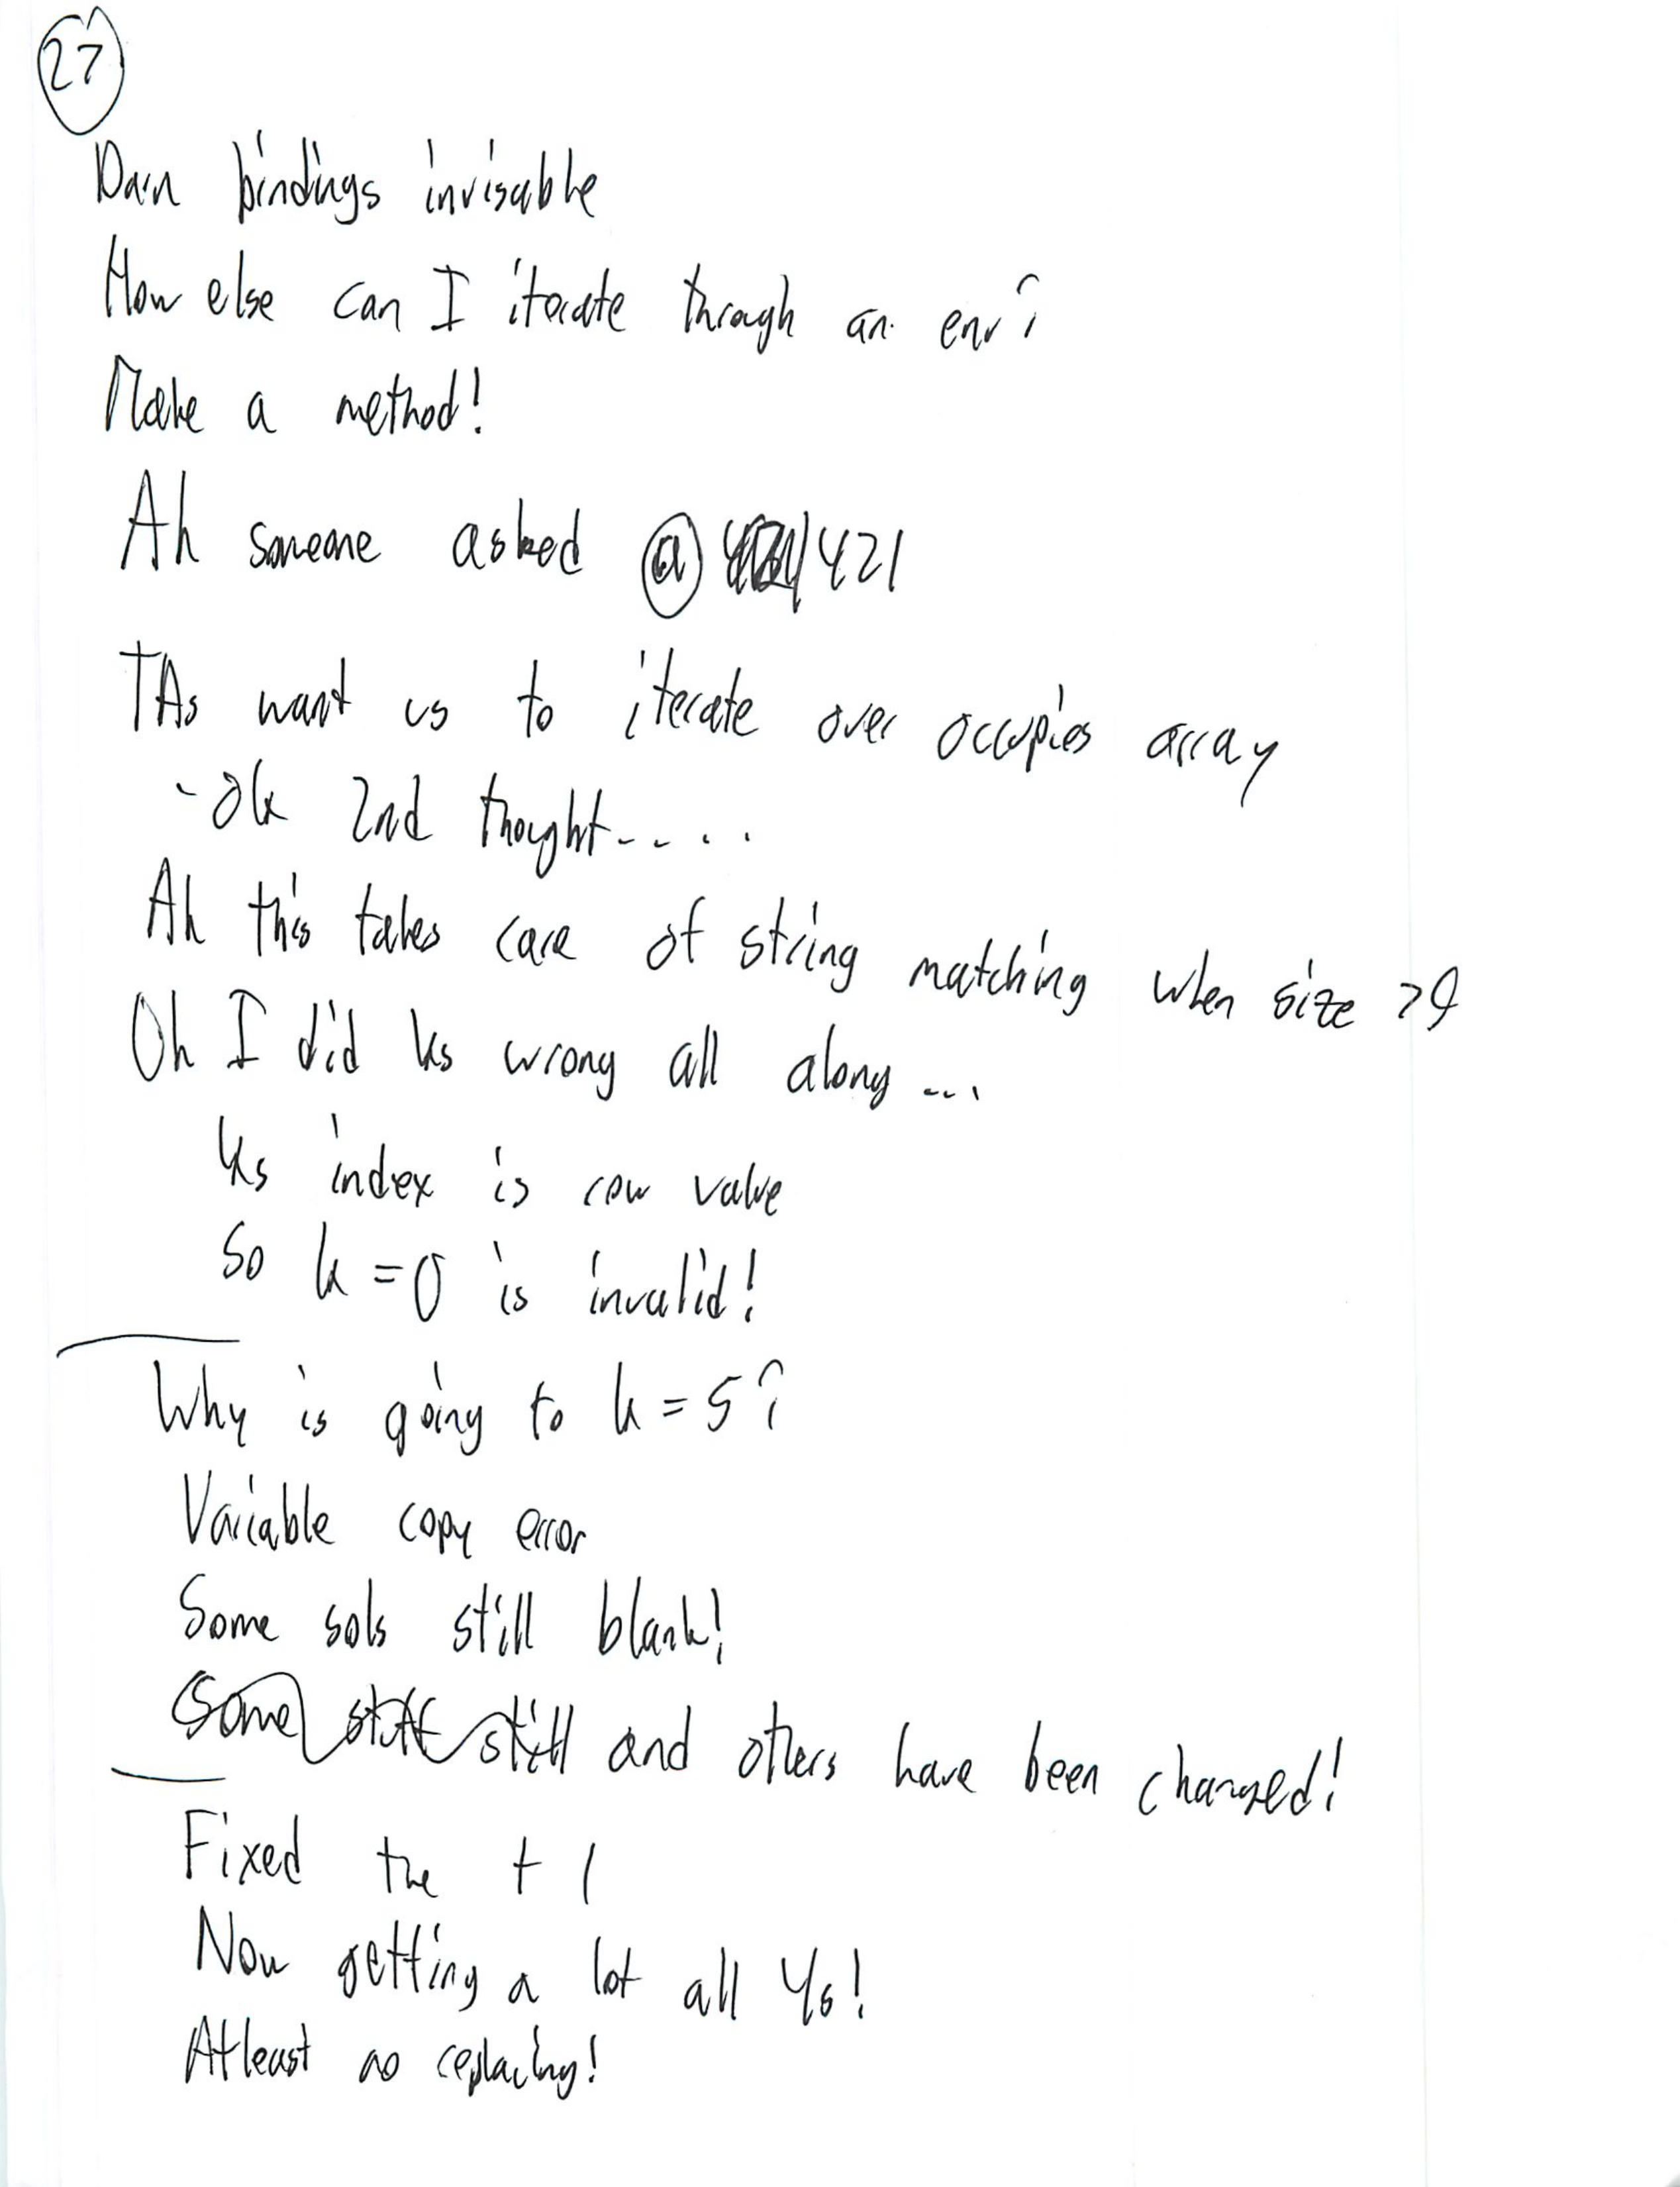 27
Darn bindings invisable
How else can I iterate through an env?
Make a method!
Ah someone asked @ 421
TAs want us to iterate over occupies array
- Ok 2nd thought.....
Ah this takes care of string matching when size > 9
Oh I did ks wrong all along...
ks index is row value
So k = 0 is invalid!
Why is going to k = 5?
Variable copy error
Some sols still blank!
Some still and others have been changed!
Fixed the + 1
Now getting a lot all 4s!
Atleast no replacing!